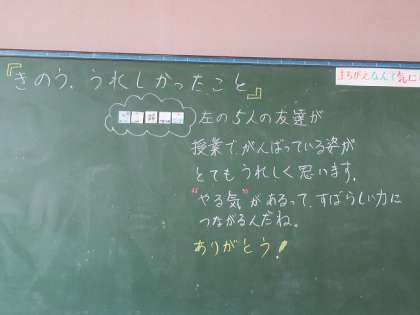 『きのう、うれしかったこと』
まちがえなんて気に
左の5人の友達が
授業で、がんばっている姿が
とてもうれしく思います。
"やる気"があるって、すばらしい力に
つながるんだね。
ありがとう!